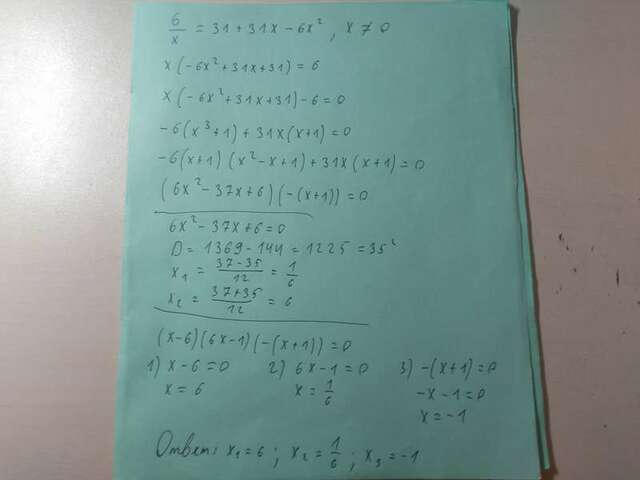 6/x = 31 + 31x - 6x², x ≠ 0
x(-6x² + 31x + 31) = 6
x(-6x² + 31x + 31) - 6 = 0
-6(x³ + 1) + 31x(x + 1) = 0
-6(x + 1)(x² - x + 1) + 31x(x + 1) = 0
(6x² - 37x + 6)(-(x + 1)) = 0
6x² - 37x + 6 = 0
D = 1369 - 144 = 1225 = 35²
x₁ = (37 - 35)/12 = 1/6
x₂ = (37 + 35)/12 = 6
(x - 6)(6x - 1)(-(x + 1)) = 0
1) x - 6 = 0 2) 6x - 1 = 0 3) -(x + 1) = 0
x = 6 x = 1/6 -x - 1 = 0
x = -1
Ответ: x₁ = 6; x₂ = 1/6; x₃ = -1